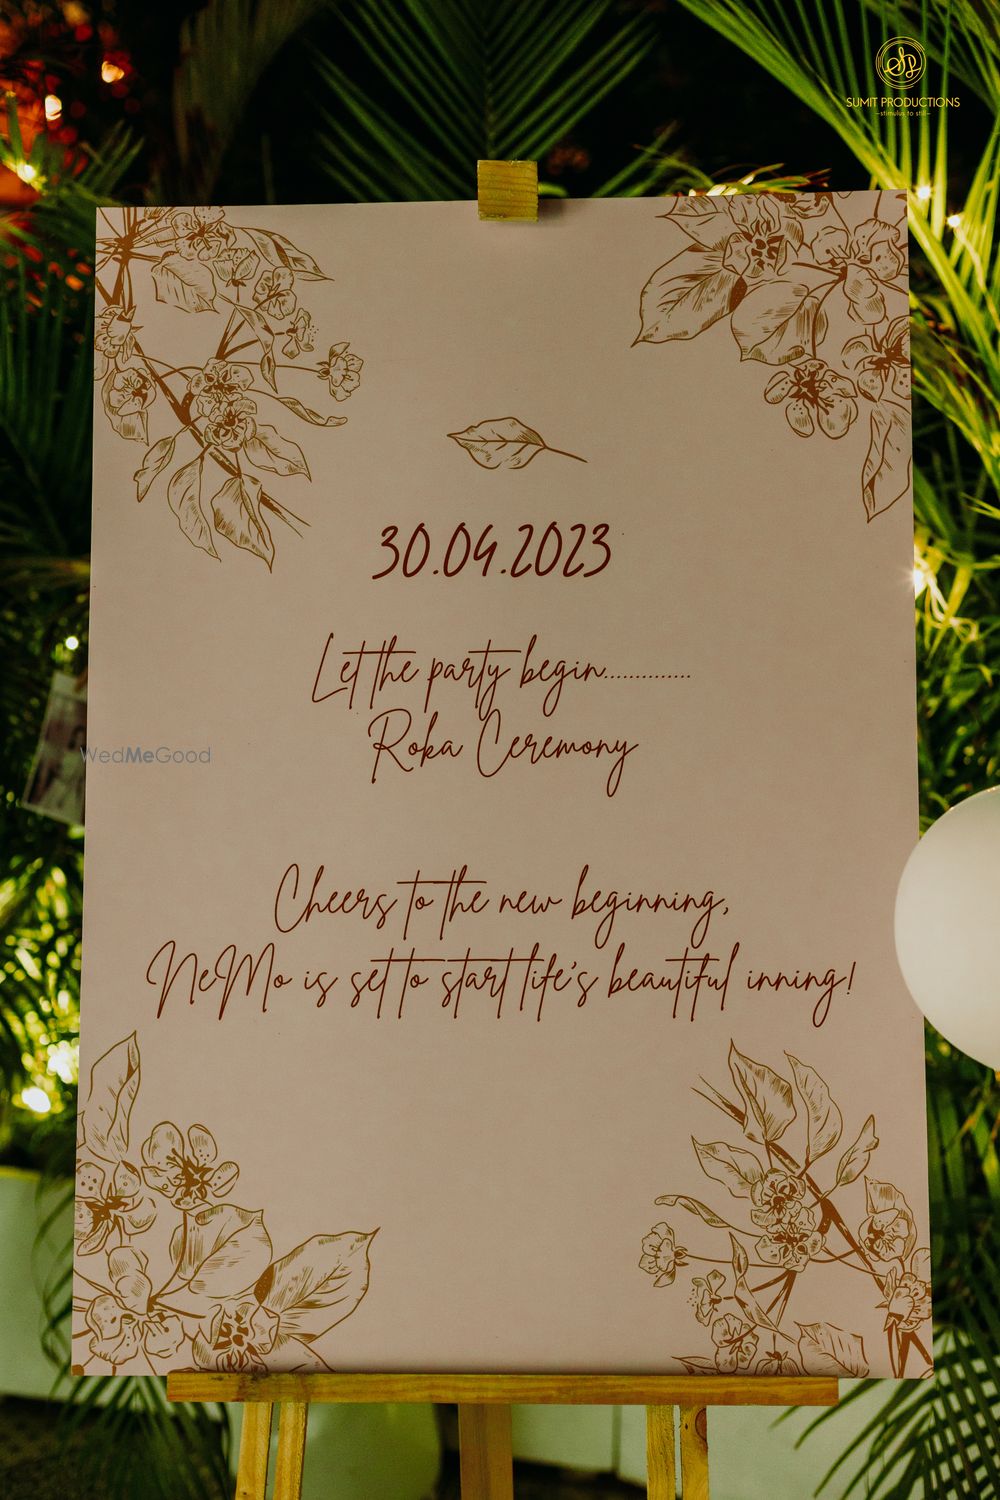 SUMIT PRODUCTIONS
-stimulus to still-
30.04.2023
Let the party begin..............
Roka Ceremony
WedMeGood
Cheers to the new beginning,
NeMo is set to start life's beautiful inning!